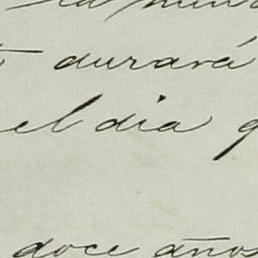 durará
el dia
doce años